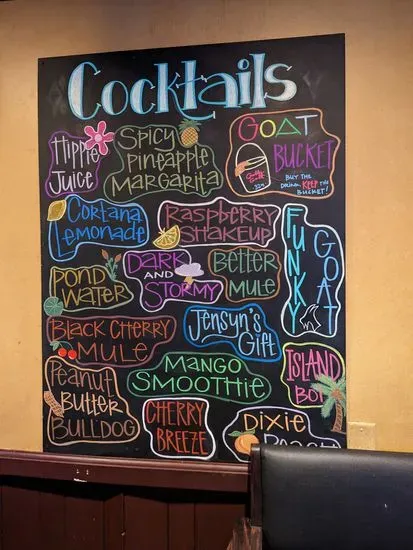 Cocktails
Hippie
Juice
Spicy
Pineapple
Margarita
GOAT
BUCKET
BUY THE
KEEP THE
BUCKET
Cortana
Lemonade
Raspberry
Shakeup
FUNKY
GOAT
Pond
Water
DARK
AND
STORMY
Better
Mule
Black Cherry
Mule
Jensyn's
Gift
Mango
Smoothie
ISLAND
BOI
Peanut
Butter
Bulldog
CHERRY
BREEZE
Dixie